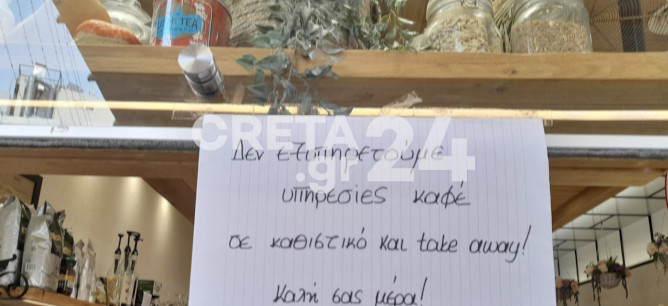 TEA
CRETA24
.gr
Δεν εξυπηρετούμε
υπηρεσίες καφέ
σε καθιστικό και take away!
Καλή σας μέρα!